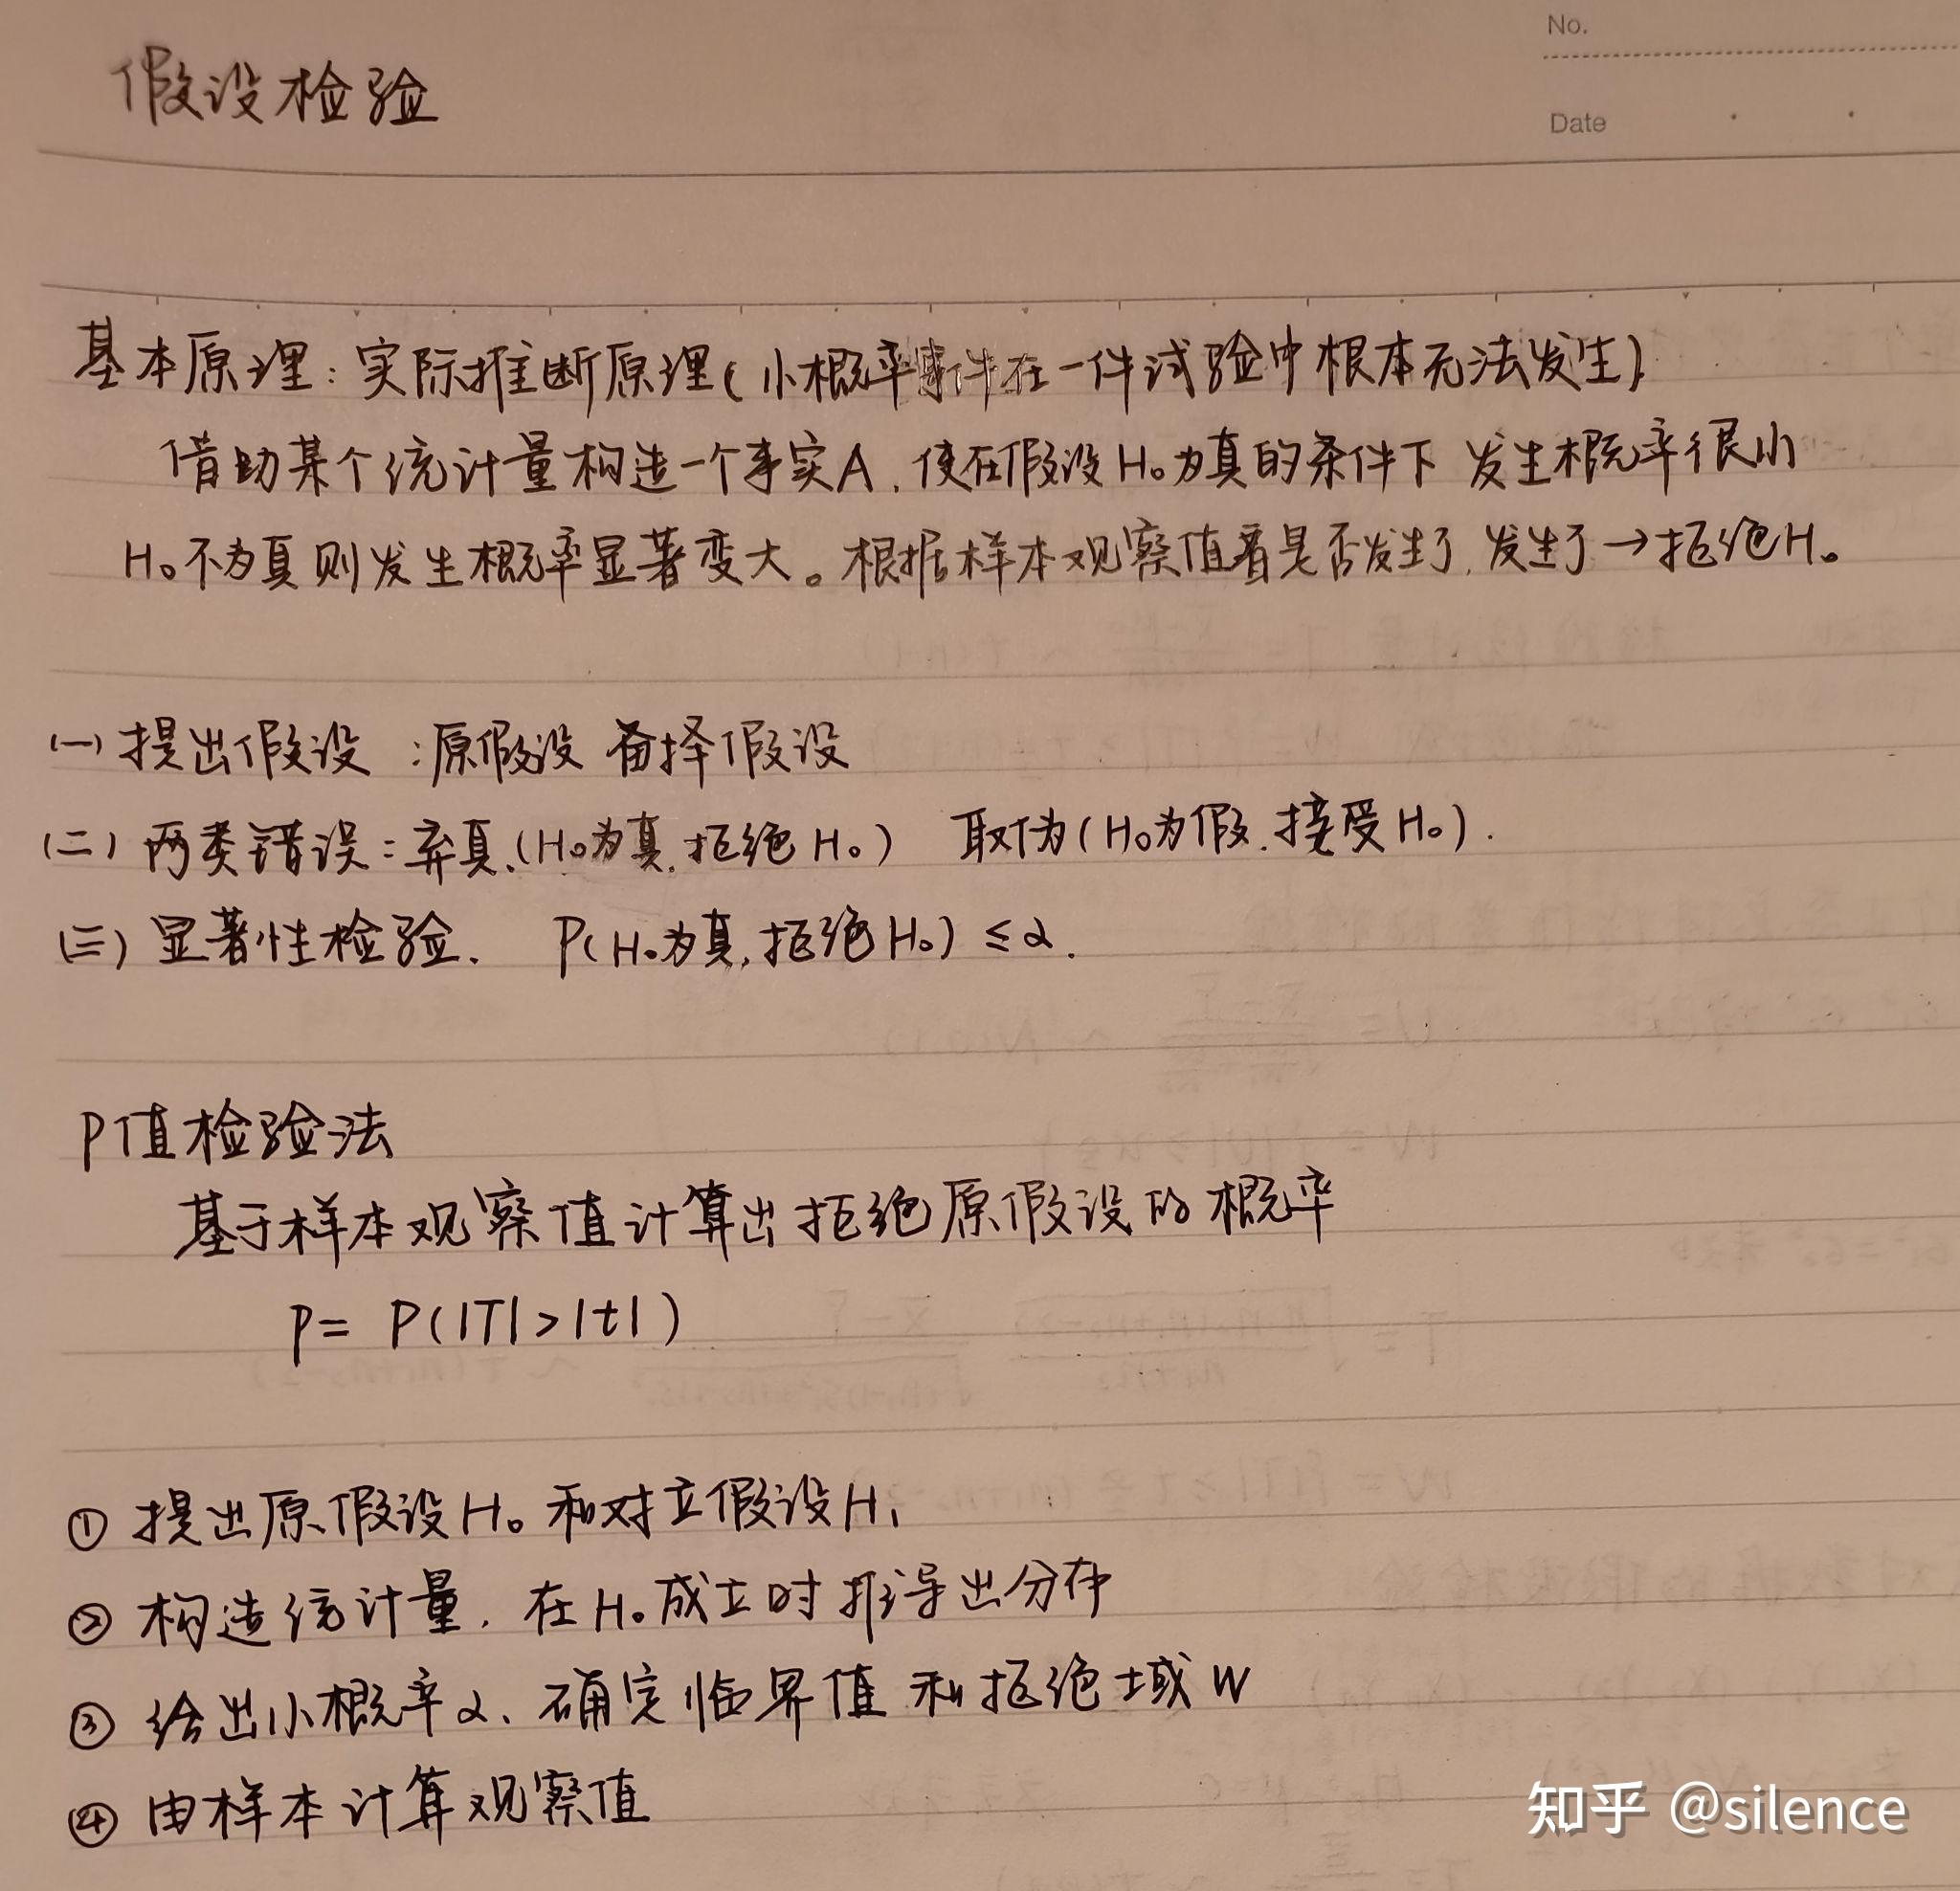 No.
Date
假设检验
基本原理：实际推断原理（小概率事件在一件试验中根本无法发生）
借助某个统计量构造一个事实A，使在假设H₀为真的条件下 发生概率很小
H₀不为真则发生概率显著变大。根据样本观察值看是否发生了，发生了→拒绝H₀
(一) 提出假设 ：原假设 备择假设
(二) 两类错误：弃真（H₀为真，拒绝H₀） 取伪（H₀为假，接受H₀）.
(三) 显著性检验. P(H₀为真，拒绝H₀) ≤ α.
P值检验法
基于样本观察值计算出拒绝原假设的概率
P= P(|T|>|t|)
① 提出原假设H₀和对立假设H₁
② 构造统计量，在H₀成立时推导出分布
③ 给出小概率α、确定临界值和拒绝域W
④ 由样本计算观察值
知乎 @silence